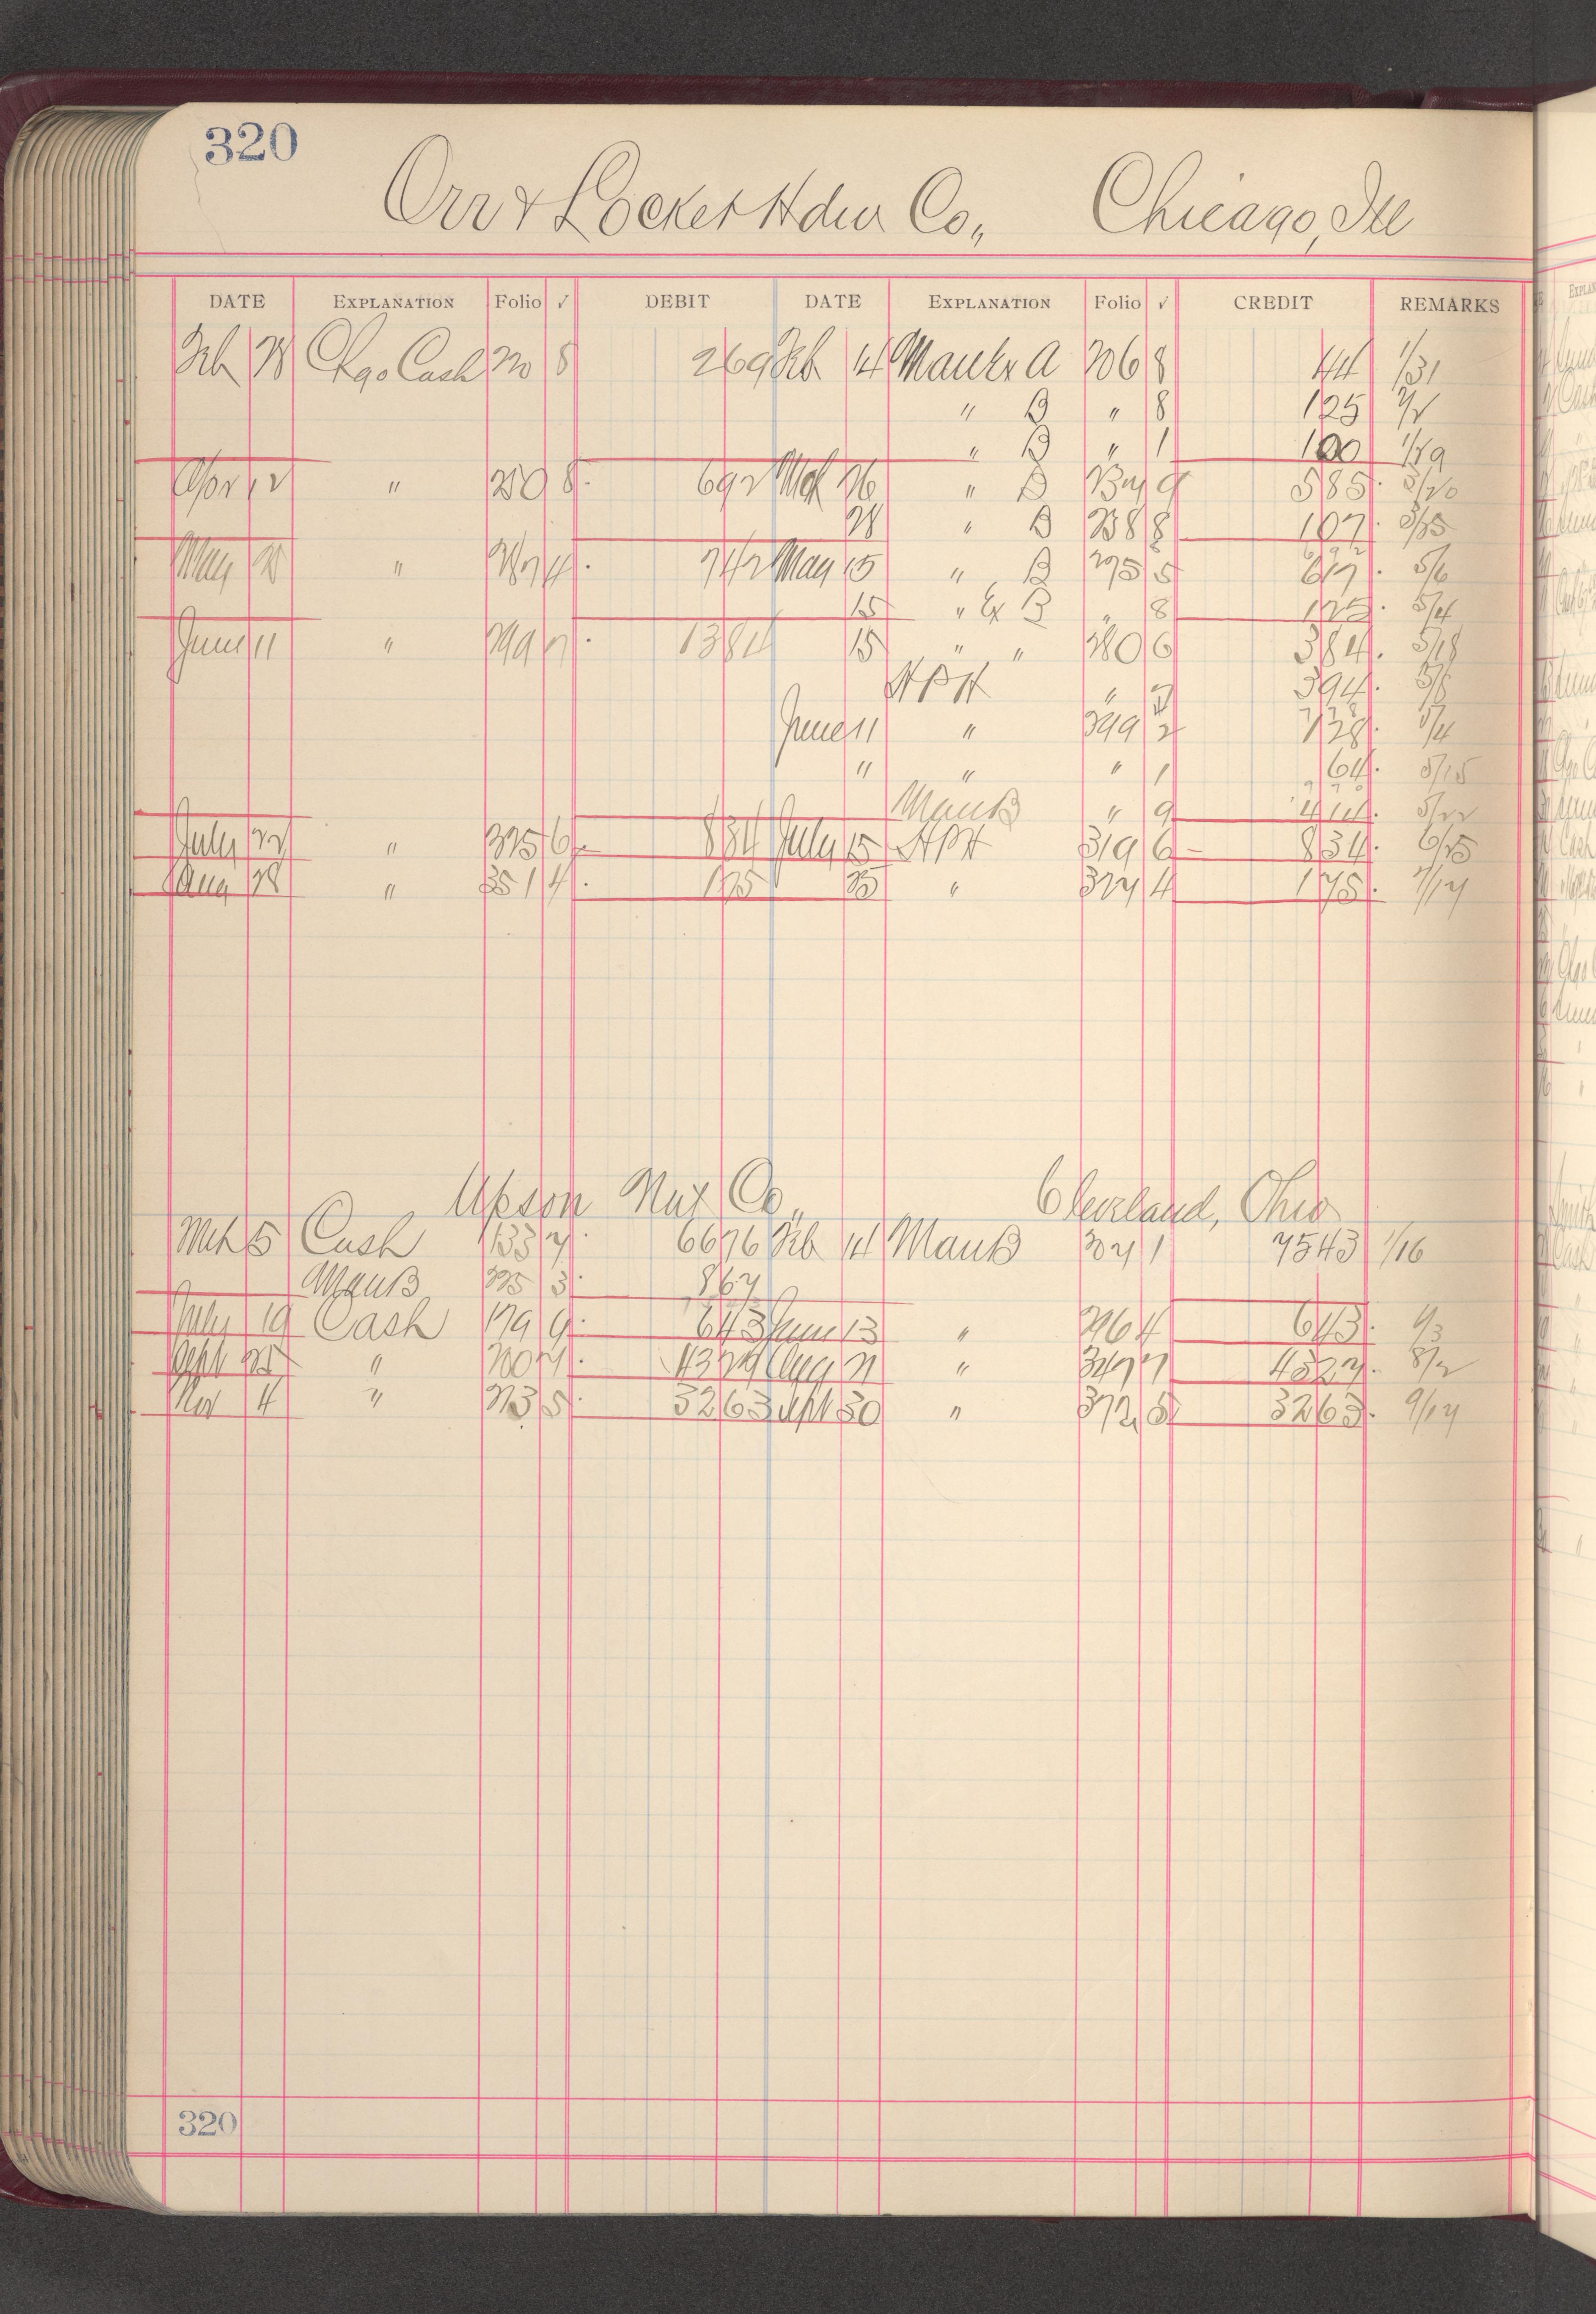 320
Orr & Locket Hdw Co,, Chicago, Ill
DATE EXPLANATION Folio √ DEBIT DATE EXPLANATION Folio √ CREDIT REMARKS
Feb 28 Chgo Cash 220 8 269 Feb 14 Manfr A 206 8 44 1/31
" B " 8 125 2/1
" B " 1 100 1/29
Apr 12 " 250 8 692 Mch 26 " B 9 585 3/20
28 " B 238 8 107 3/25
May 28 " 4 742 May 15 " B 275 5 617 5/6
15 " Ex B " 8 125 5/4
June 11 " 299 7 1384 15 " " 280 6 384 5/18
APH " 394 5/8
June 11 " 299 2 138 5/4
" " " 1 64 5/15
Man B " 9 414 5/22
July 22 " 325 6 834 July 15 APH 319 6 834 6/25
Aug 28 " 351 4 175 25 " 327 4 175 7/17
Upson Nut Co,, Cleveland, Ohio
Mch 5 Cash 133 7 6676 Feb 14 Man B 207 1 7543 1/16
Man B 225 3 867
July 19 Cash 179 9 643 June 13 " 296 4 643 6/3
Sept 25 " 200 7 4327 Aug 21 " 347 7 4327 8/2
Nov 4 " 213 5 3263 Sept 30 " 372 5 3263 9/17
320